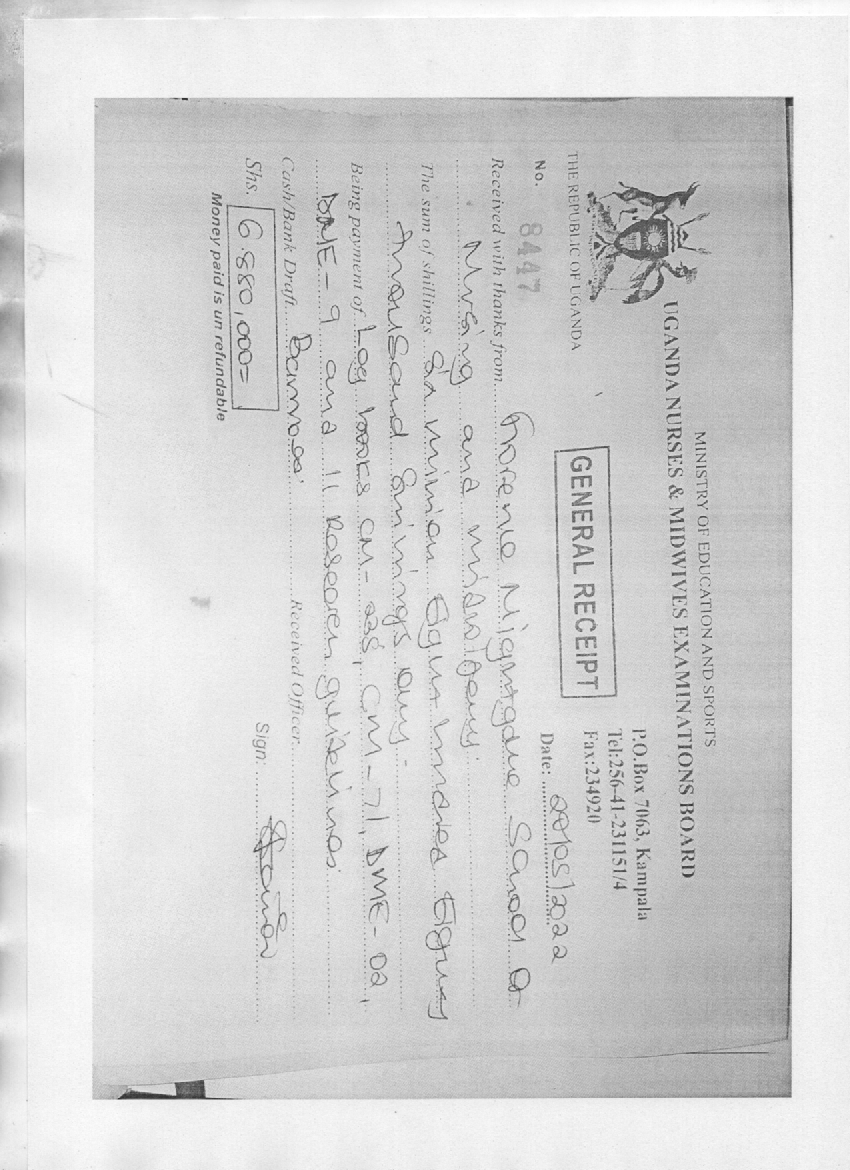 MINISTRY OF EDUCATION AND SPORTS
UGANDA NURSES & MIDWIVES EXAMINATIONS BOARD
P.O.Box 7063, Kampala
Tel:256-41-231151/4
Fax:234920
THE REPUBLIC OF UGANDA
GENERAL RECEIPT
No. 8447
Date: 20/05/2022
Received with thanks from Florence Nightgale School of
Nursing and midwifery
The sum of shillings Six million Eight hundred Eighty
thousand Shillings only -
Being payment of Log books CM-238, CM-71, DME-02,
DNE-9 and 11 Research guidelines
Cash/Bank Draft Received Officer
Shs. 6.880,000= Sign:
Money paid is un refundable